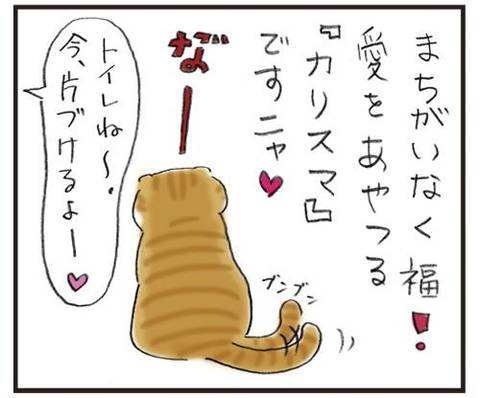 まちがいなく福！
愛をあやつる
『カリスマ』
ですニャ♥
なー
ブンブン
トイレね〜。
今、片づけるよー♥